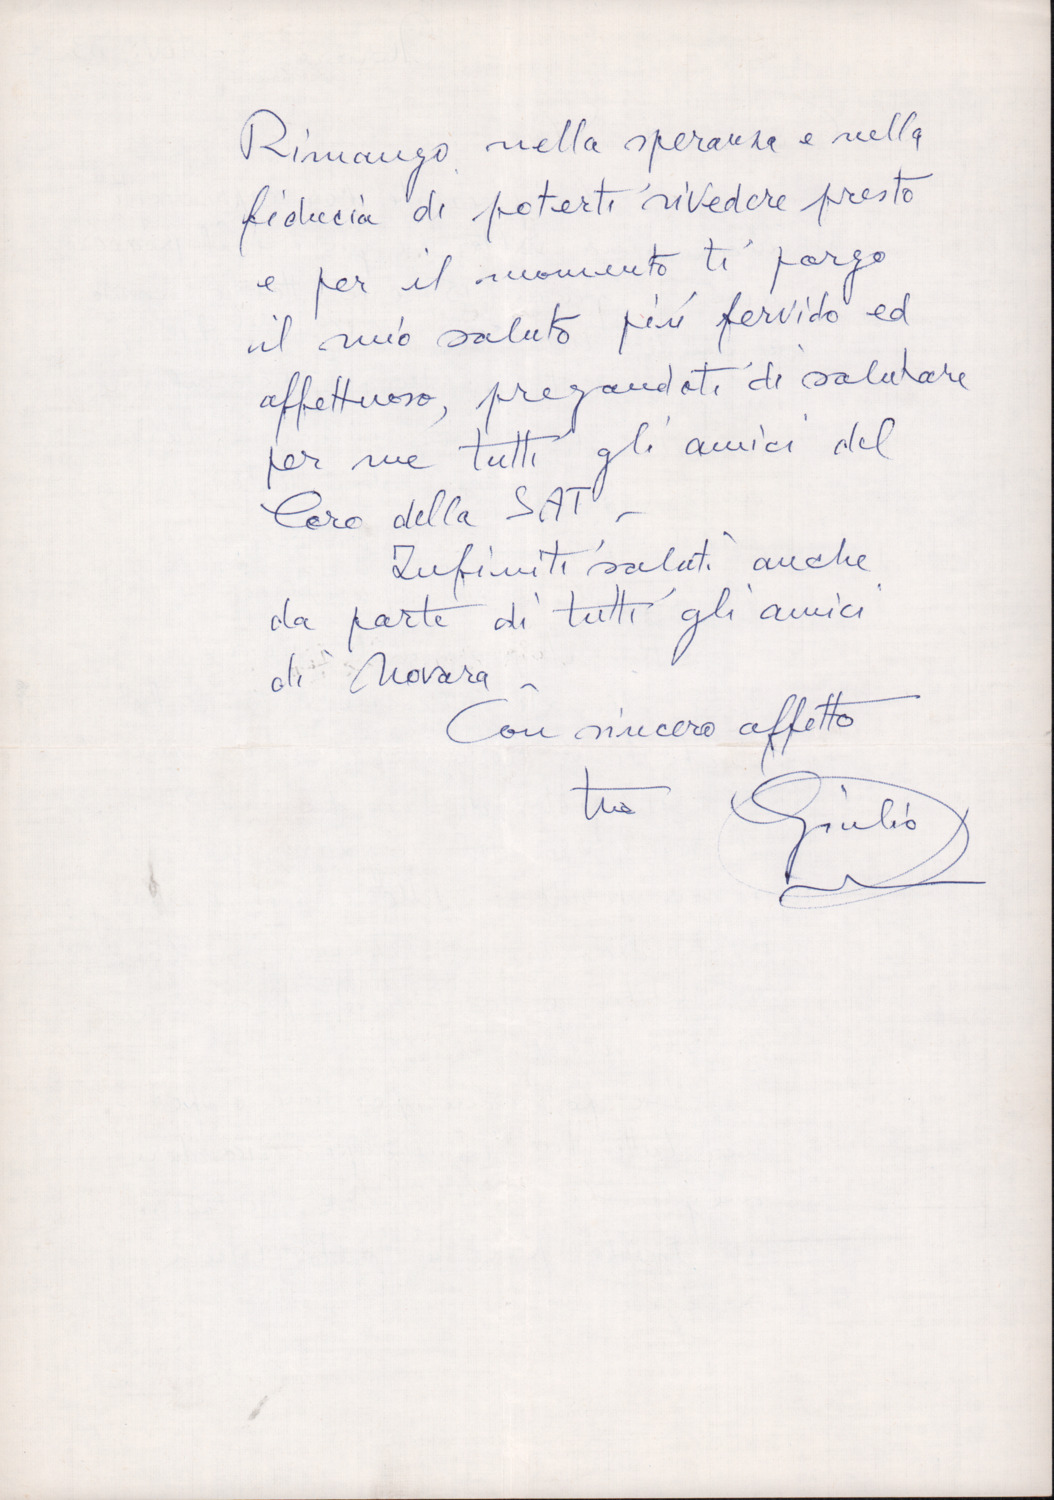 Rimango nella speranza e nella
fiducia di poterti rivedere presto
e per il momento ti porgo
il mio saluto più fervido ed
affettuoso, pregandoti di salutare
per me tutti gli amici del
Coro della SAT -
Infiniti saluti anche
da parte di tutti gli amici
di Novara -
Con sincero affetto
tuo Giulio